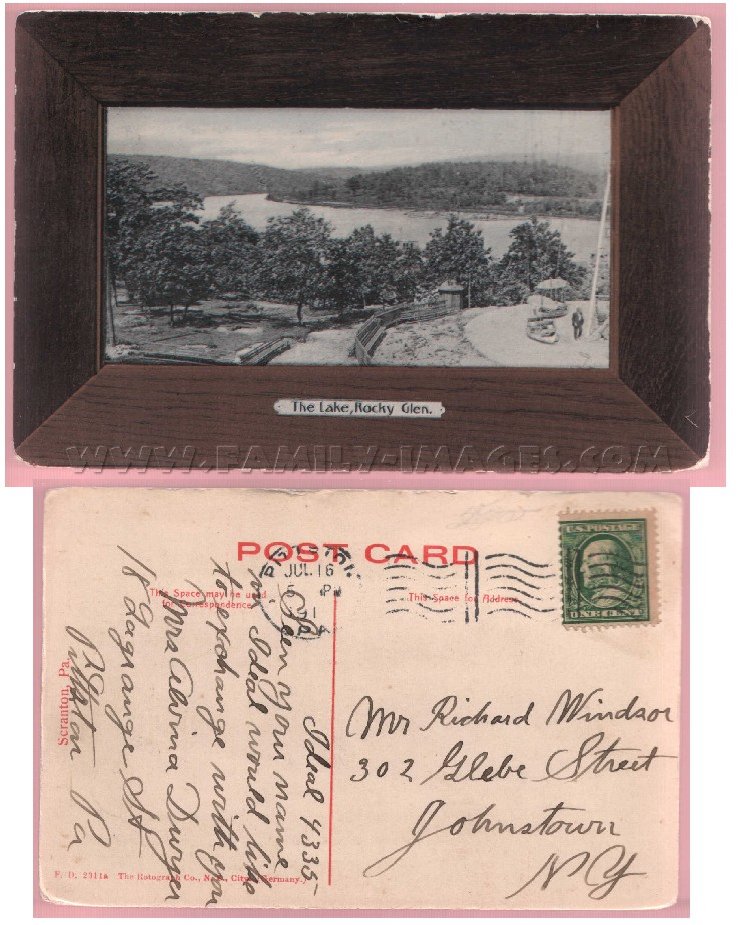 The Lake, Rocky Glen.
WWW.FAMILY-IMAGES.COM
POST CARD
This Space may be used
for Correspondence
This Space for Address
JUL 16
PM
U.S. POSTAGE
ONE CENT
Ideal 4335
Seen your name
in Ideal would like
to exchange with you
Mrs Alvina Duryer
18 Lagrange St
Pittston Pa
Mr Richard Windsor
302 Glebe Street
Johnstown
NY
Scranton, Pa.
F. D. 2311a The Rotograph Co., N. Y. City. (Germany.)